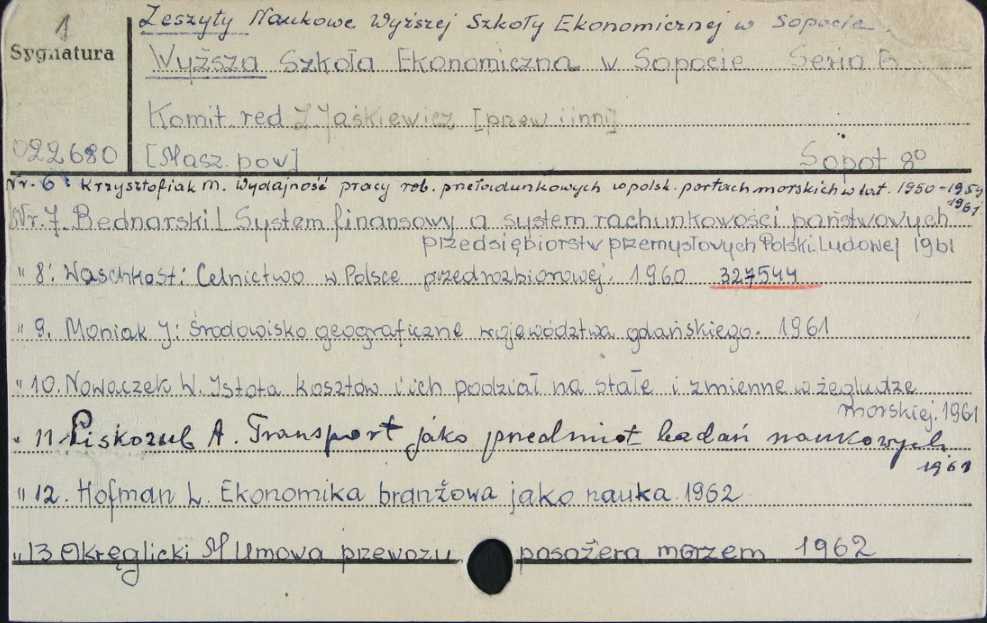 1
Zeszyty Naukowe Wyższej Szkoły Ekonomicznej w Sopocie.
Sygnatura
Wyższa Szkoła Ekonomiczna w Sopocie Seria B
Komit. red J. Jaśkiewicz [przew i inni]
022680 [Masz. pow] Sopot 8º
Nr. 6: Krzysztofiak M. Wydajność pracy rob. przeładunkowych w polsk. portach morskich w lat. 1950-1959
1961
Nr. 7. Bednarski L System finansowy a system rachunkowości państwowych
przedsiębiorstw przemysłowych Polski Ludowej 1961
" 8: Waschkost: Celnictwo w Polsce przedrozbiorowej. 1960 327544
" 9. Moniak J: Środowisko geograficzne województwa gdańskiego. 1961
" 10. Nowaczek W. Istota kosztów i ich podział na stałe i zmienne w żegludze
morskiej. 1961
" 11. Piskozub A. Transport jako przedmiot badań naukowych
1961
" 12. Hofman L. Ekonomika branżowa jako nauka. 1962
" 13 Okręglicki M Umowa przewozu pasażera morzem 1962